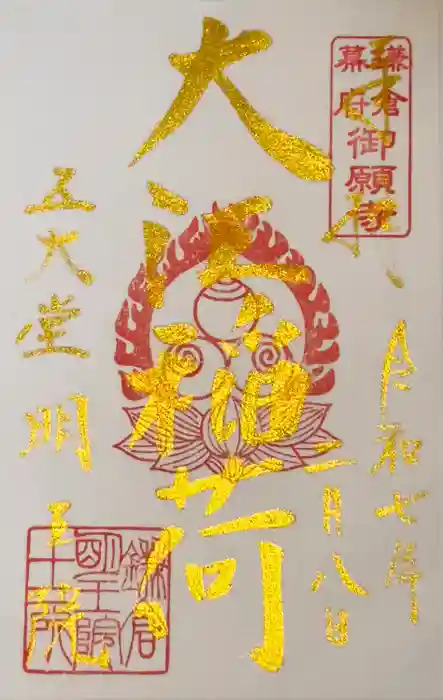 鎌倉
幕府
御願寺
奉拝
令和七年
二月八日
大江稲荷
五大堂明王院
鎌倉
明王院